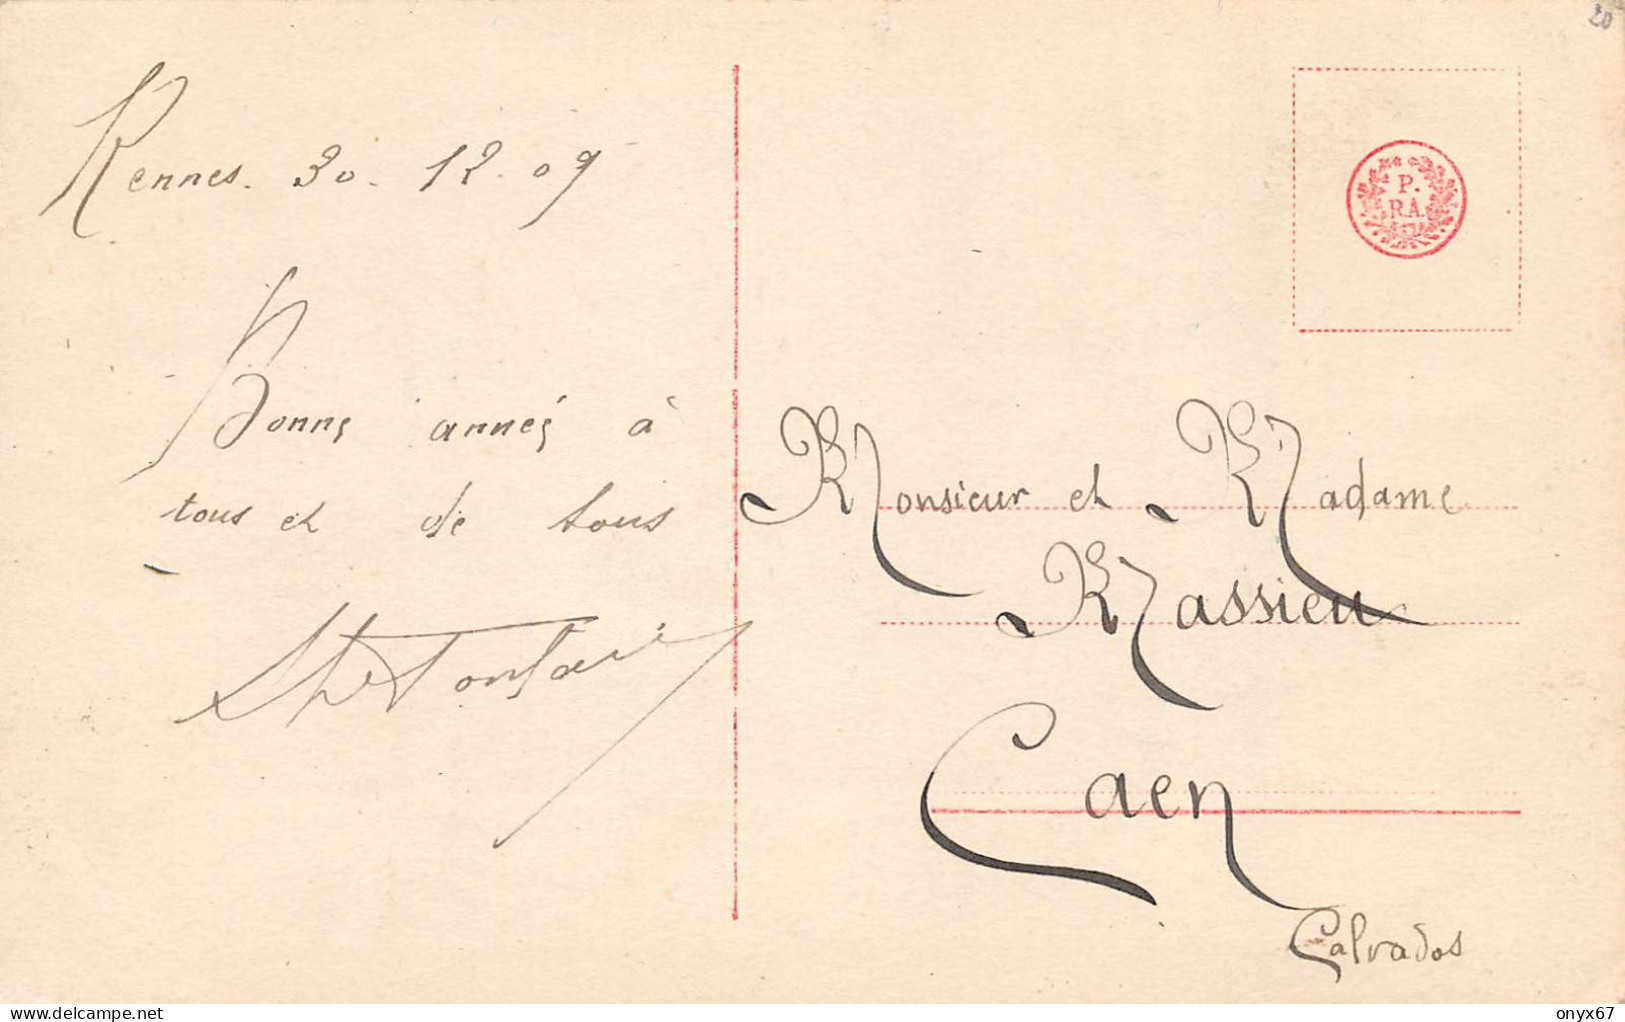 20
Rennes. 30. 12. 09
Bonne année à
tous et de tous
P.
R.A.
Monsieur et Madame
Massieu
Caen
Calvados
delcampe.net
onyx67